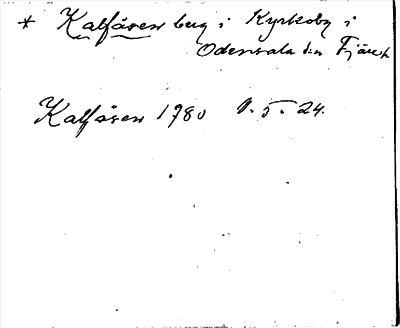 * Kalfåsen berg i Kyrkoby i
Odensala sn Fjäre h
Kalfåsen 1780 V. 5. 24.